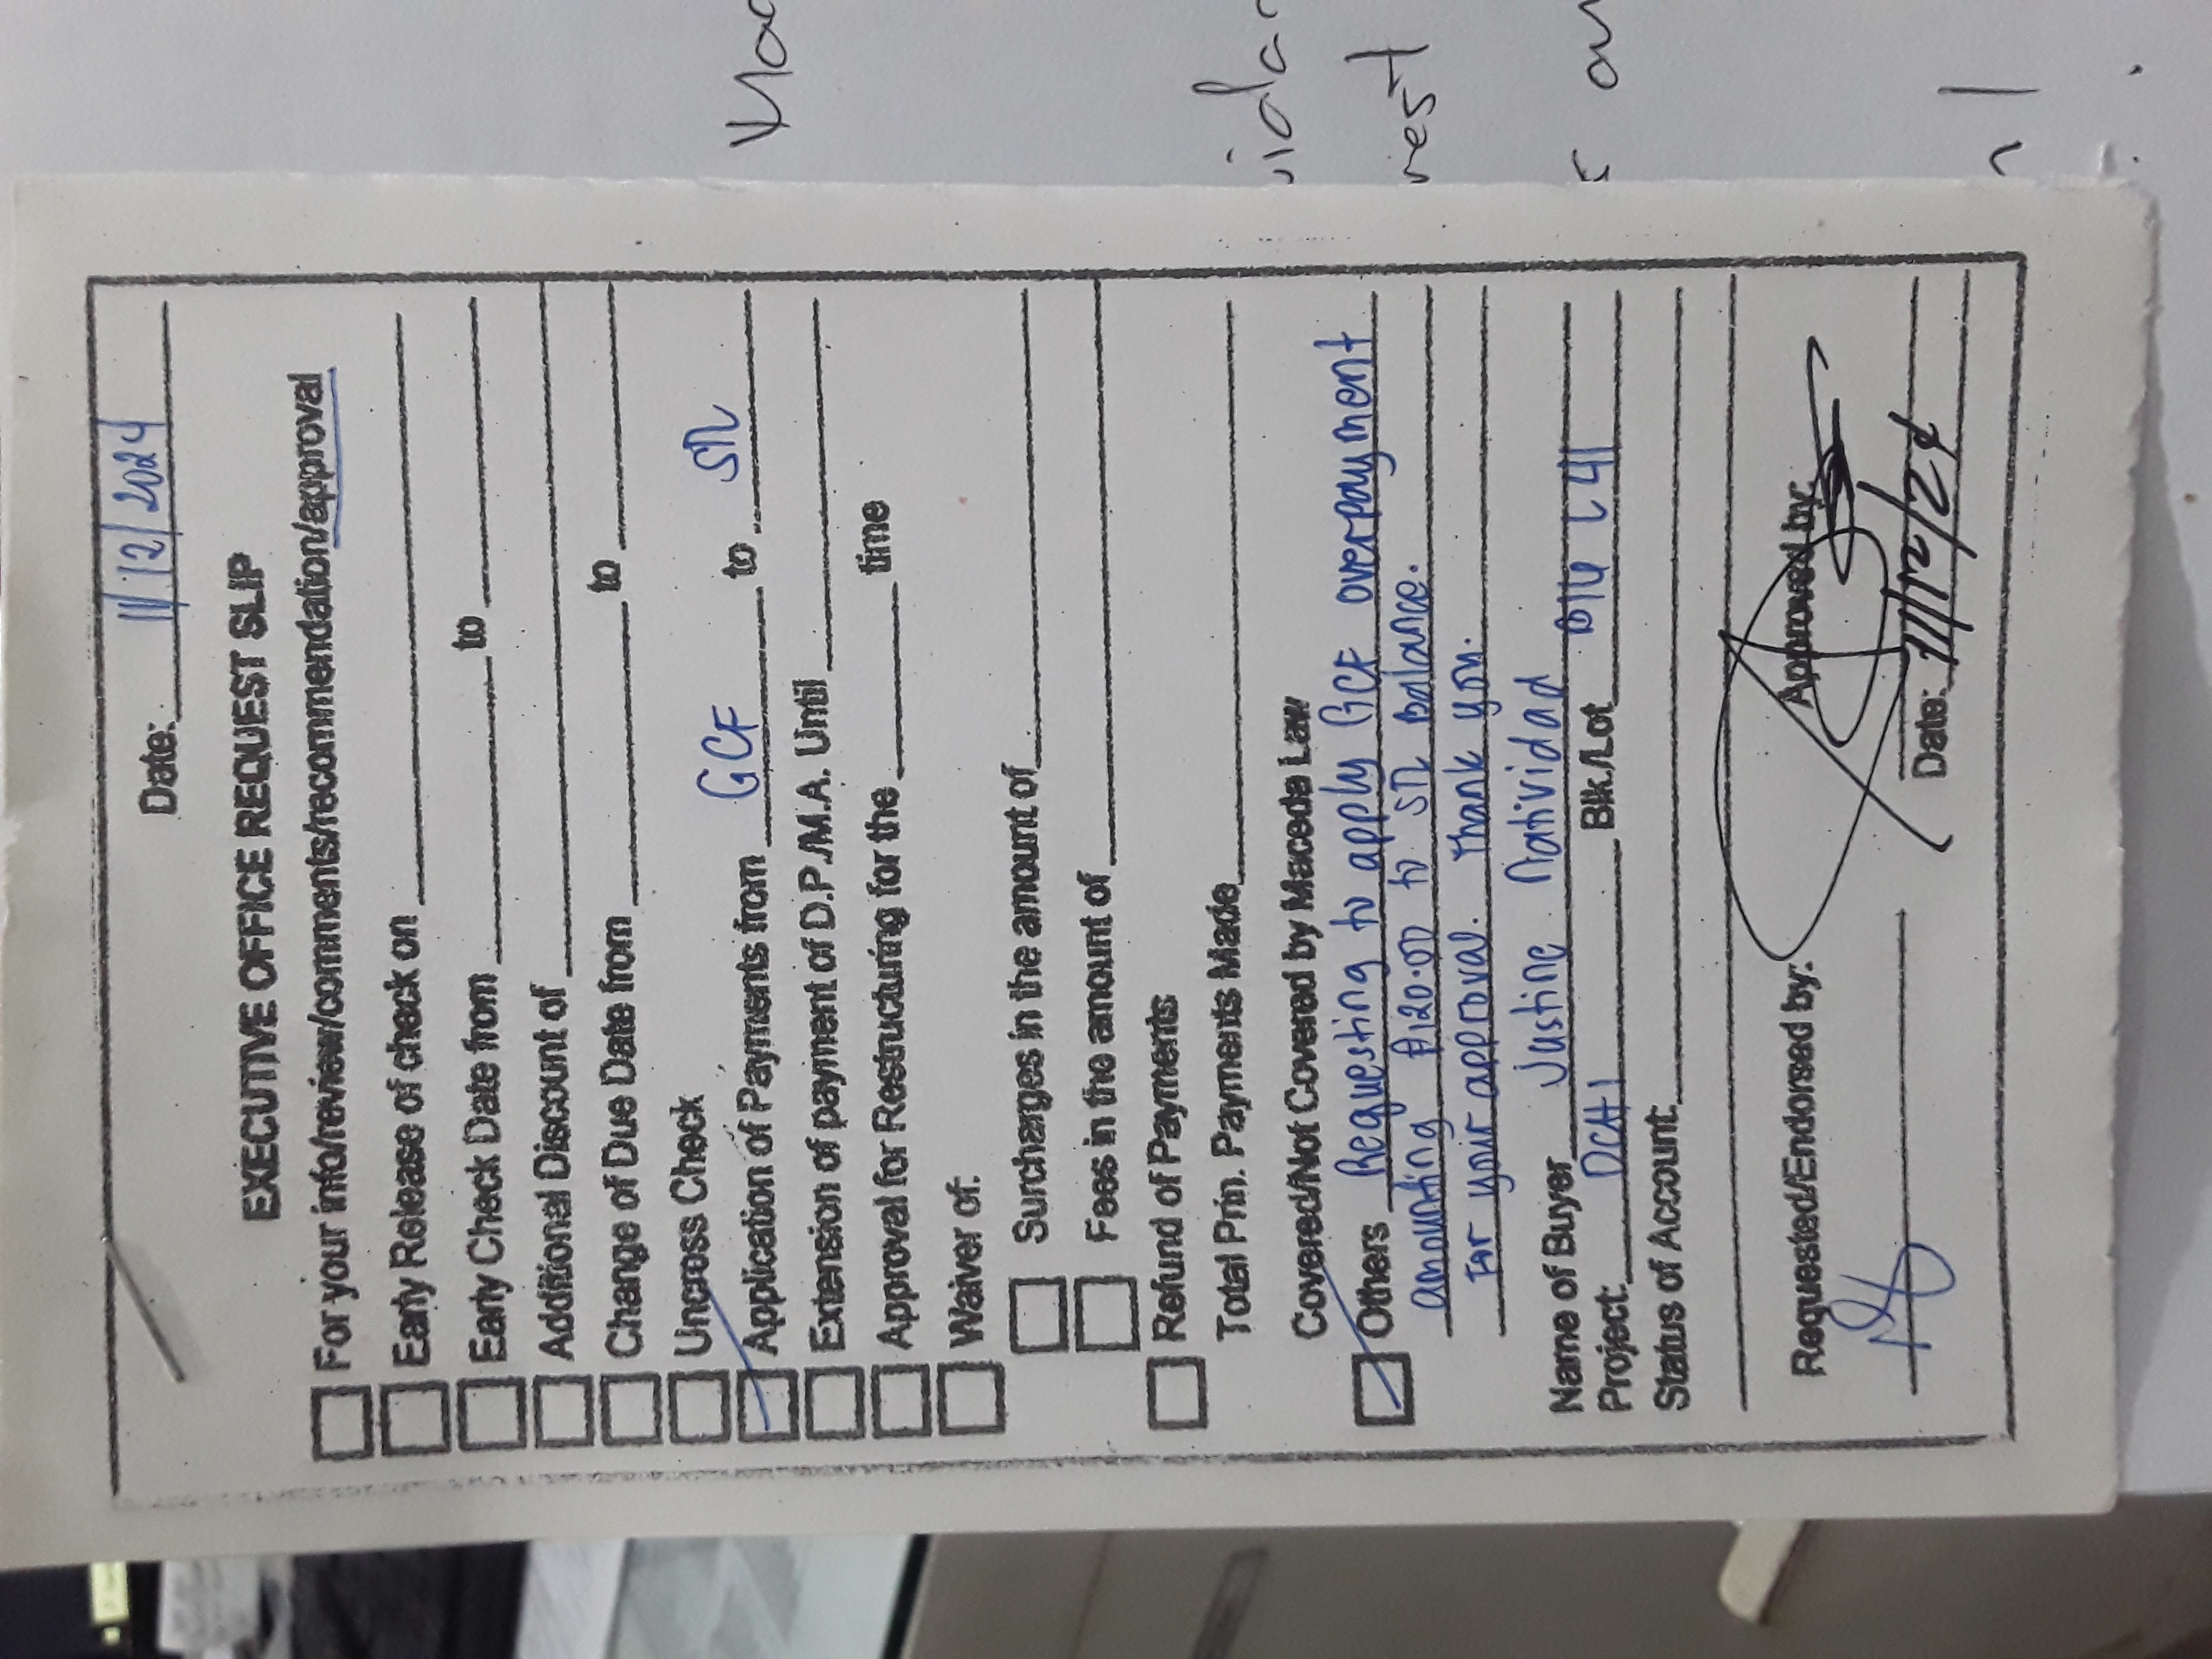 Date: 11/12/2024
EXECUTIVE OFFICE REQUEST SLIP
For your info/review/comments/recommendation/approval
Early Release of check on
Early Check Date from to
Additional Discount of
Change of Due Date from to
Uncross Check
Application of Payments from GCF to
Extension of payment of D.P./M.A. Until
Approval for Restructuring for the time
Waiver of:
Surcharges in the amount of
Fees in the amount of
Refund of Payments
Total Prin. Payments Made
Covered/Not Covered by Maceda Law
Others Requesting to apply GCF overpayment
amounting ₱120.00 to Balance.
For your approval. Thank you.
Name of Buyer Justine Natividad
Project: DCH1 Blk./Lot B16 L41
Status of Account:
Requested/Endorsed by: Approved by:
Date: 11/12/24